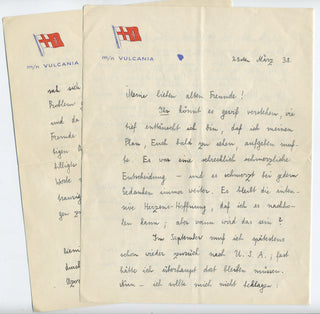 m/n VULCANIA
sich
Problem
und da
Fremde
tigen
billiges
Worte
gen zu
durch
m/n VULCANIA
März 38.
Meine lieben alten Freunde!
Ihr könnt es gewiß verstehen, wie
tief enttäuscht ich bin, daß ich meinen
Plan, Euch bald zu sehen aufgeben muß-
te. Es war eine schrecklich schmerzliche
Entscheidung – und es schmerzt bei jedem
Gedanken immer weiter. Es bleibt die inten-
sive Herzens-Hoffnung, daß ich es nachho-
len kann; aber wann wird das sein?
Im September muß ich spätestens
schon wieder zurück nach U.S.A.; fast
hätte ich überhaupt dort bleiben müssen.
Nun – ich sollte mich nicht beklagen: